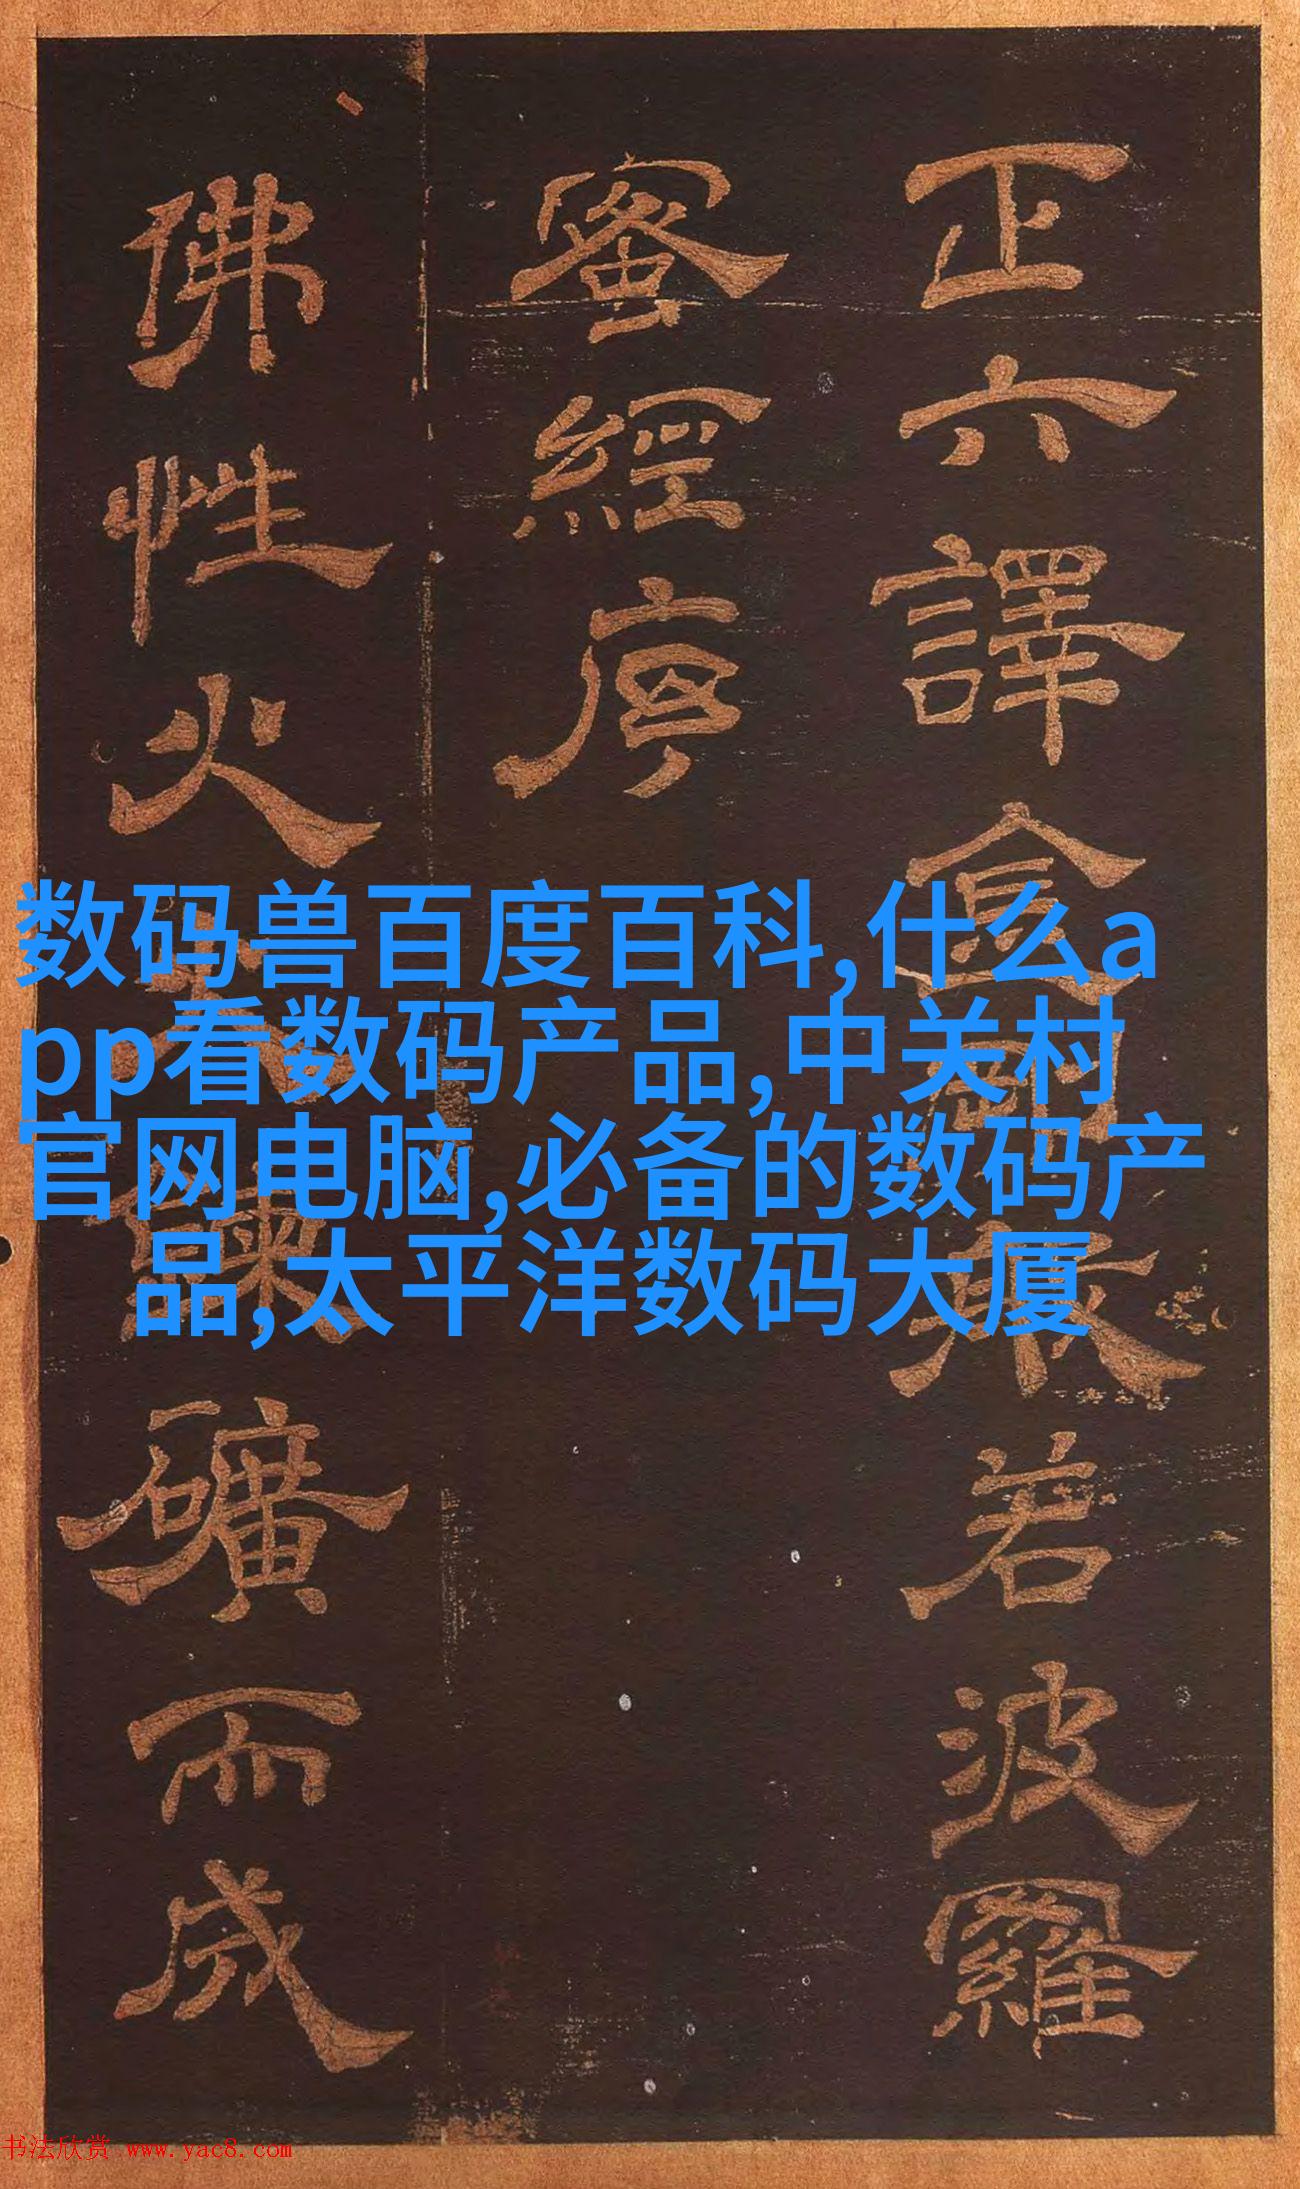 正六譯金剛般若波羅
蜜經序
佛性火
礦而成
数码兽百度百科,什么a
pp看数码产品,中关村
官网电脑,必备的数码产
品,太平洋数码大厦
书法欣赏 www.yac8.com